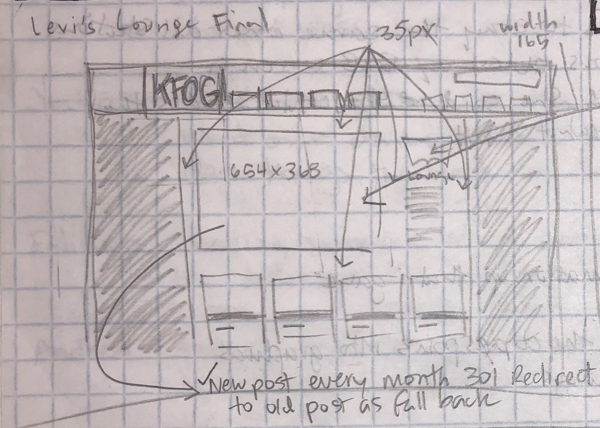 Levi's Lounge Final
35px
width
165
KFOG
654x368
Lounge
New post every month 301 Redirect
to old post as fall back